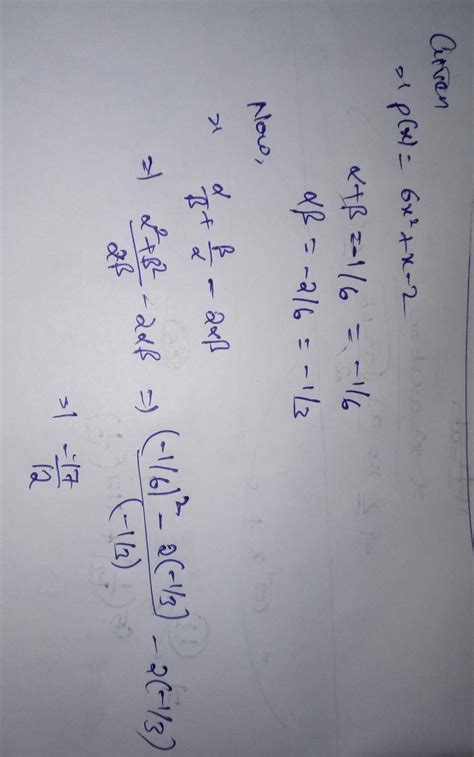 Given
=> p(x) = 6x² + x - 2
α+β = -1/6 = -1/6
αβ = -2/6 = -1/3
Now,
=> α/β + β/α - 2αβ
=> (α² + β²)/αβ - 2αβ => ((-1/6)² - 2(-1/3))/(-1/3) - 2(-1/3)
=> -17/12